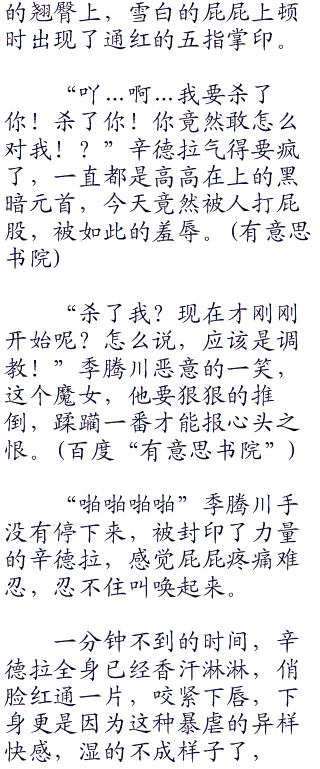 的翘臀上，雪白的屁屁上顿
时出现了通红的五指掌印。
“吖…啊…我要杀了
你！杀了你！你竟然敢怎么
对我！？”辛德拉气得要疯
了，一直都是高高在上的黑
暗元首，今天竟然被人打屁
股，被如此的羞辱。(有意思
书院)
“杀了我？现在才刚刚
开始呢？怎么说，应该是调
教！”季腾川恶意的一笑，
这个魔女，他要狠狠的推
倒，蹂躏一番才能报心头之
恨。(百度“有意思书院”)
“啪啪啪啪”季腾川手
没有停下来，被封印了力量
的辛德拉，感觉屁屁疼痛难
忍，忍不住叫唤起来。
一分钟不到的时间，辛
德拉全身已经香汗淋淋，俏
脸红通一片，咬紧下唇，下
身更是因为这种暴虐的异样
快感，湿的不成样子了，